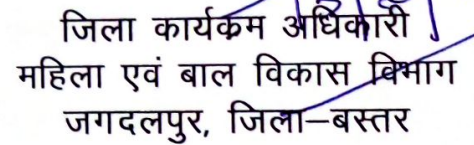 जिला कार्यकम अधिकारी
महिला एवं बाल विकास विभाग
जगदलपुर, जिला–बस्तर